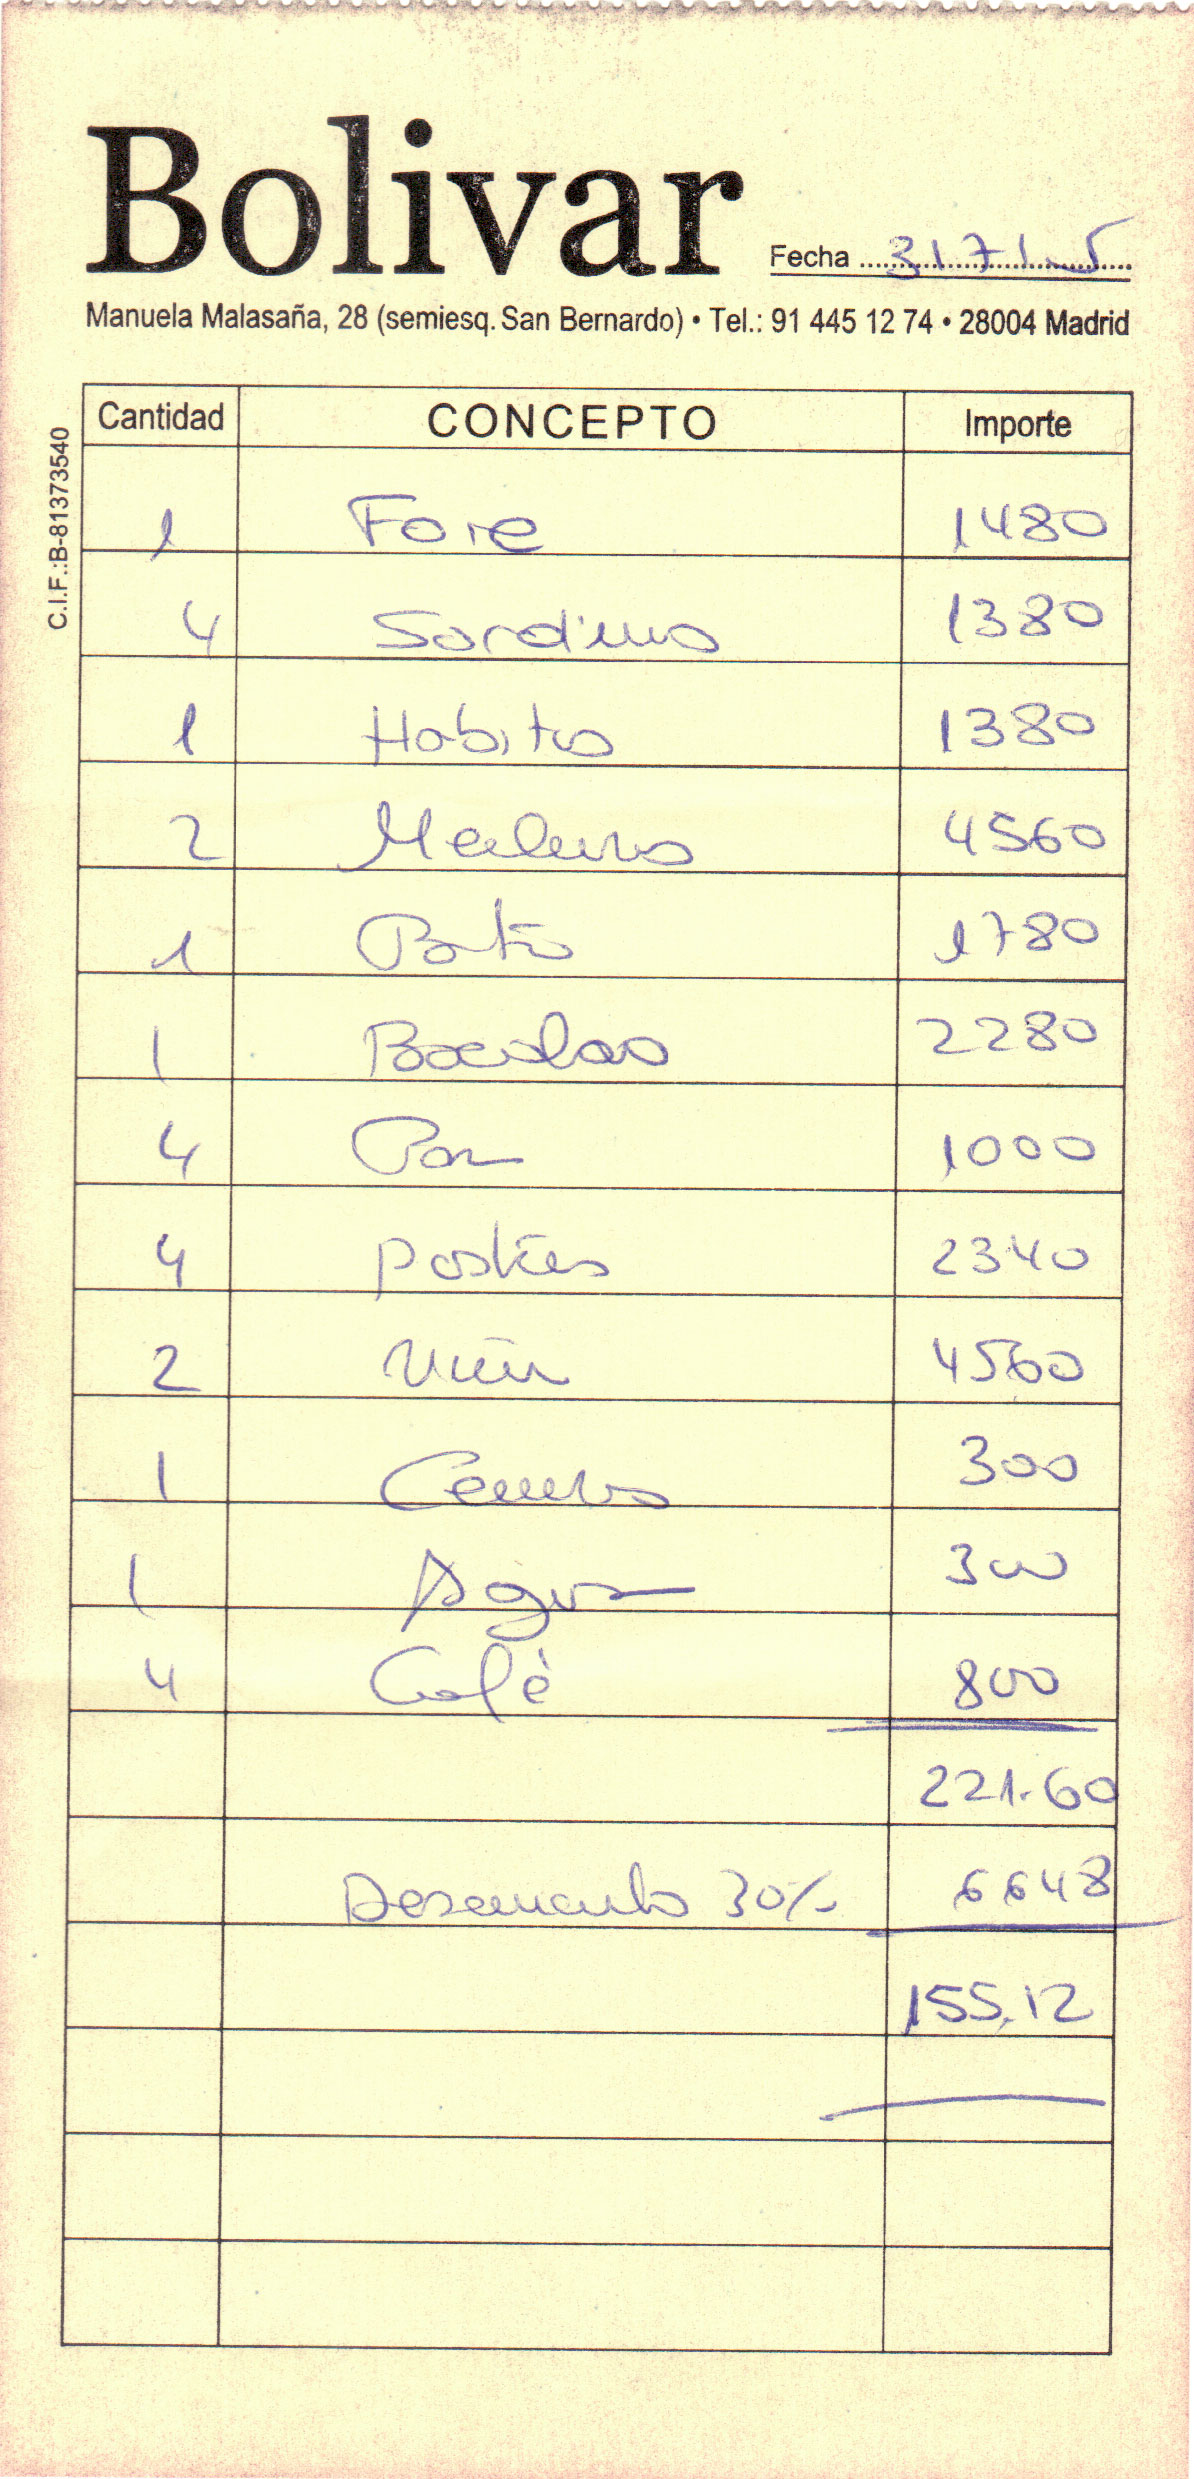 Bolivar
Fecha 31 7 1 5
Manuela Malasaña, 28 (semiesq. San Bernardo) • Tel.: 91 445 12 74 • 28004 Madrid
C.I.F.:B-81373540
Cantidad CONCEPTO Importe
1 Foie 1480
4 Sardinas 1380
1 Habitas 1380
2 4560
1 Pato 1780
1 Bacalao 2280
4 Pan 1000
4 postres 2340
2 4560
1 300
1 Agua 300
4 Cafè 800
221.60
Descuento 30% 6648
155.12